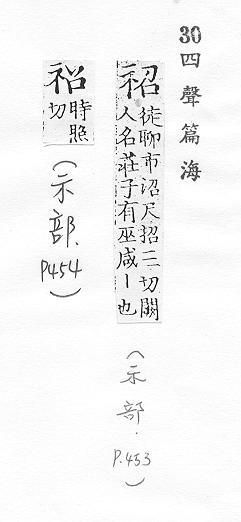 30四聲篇海
祒
徒聊市沼尺招三切闕
人名莊子有巫咸丨也
(示部.P.453)
祒
時照
切
(示部.P454)